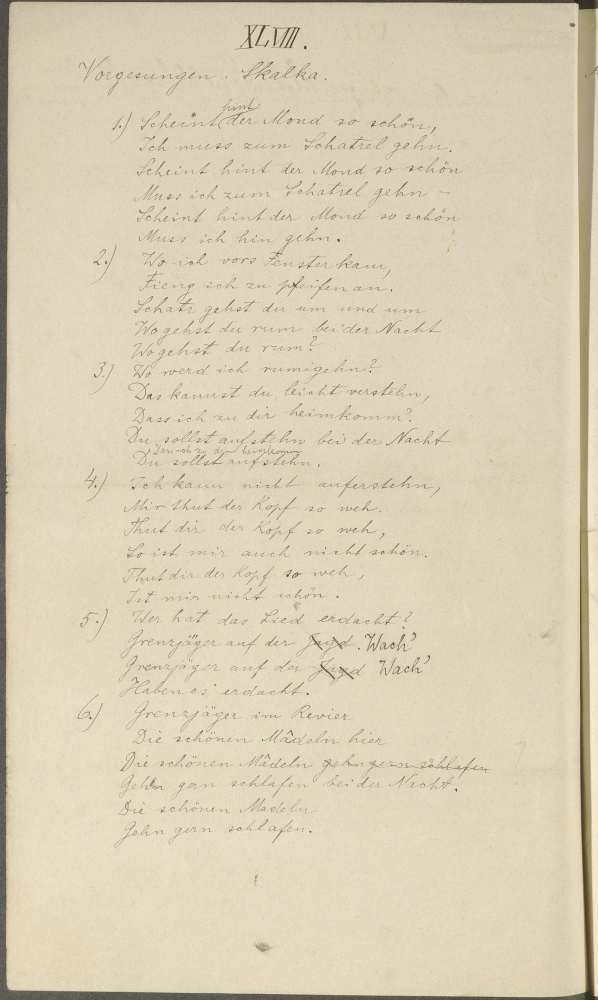 XLVIII.
Vorgesungen. Skalka.
1.) Scheint hint der Mond so schön,
Ich muss zum Schatzel gehn.
Scheint hint der Mond so schön
Muss ich zum Schatzel gehn –
Scheint hint der Mond so schön
Muss ich hin gehn.
2.) Wo ich vors Fenster kam,
Fieng ich zu pfeifen an.
Schatz gehst du um und um
Wo gehst du rum bei der Nacht
Wo gehst du rum?
3.) Wo werd ich rumigehn?
Das kannst du leicht verstehn,
Dass ich zu dir heimkomm?
Du sollst aufstehn bei der Nacht
Dass ich zu dir heimkomm
Du sollst aufstehn.
4.) Ich kann nicht auferstehn,
Mir thut der Kopf so weh.
Thut dir der Kopf so weh,
So ist mir auch nicht schön.
Thut dir der Kopf so weh,
Ist mir nicht schön.
5.) Wer hat das Lied erdacht?
Grenzjäger auf der Jagd. Wach'
Grenzjäger auf der Jagd Wach'
Haben es erdacht.
6.) Grenzjäger im Revier
Die schönen Mädeln hier
Die schönen Mädeln gehn gern schlafen
Gehn gern schlafen bei der Nacht.
Die schönen Madeln
Gehn gern schlafen.